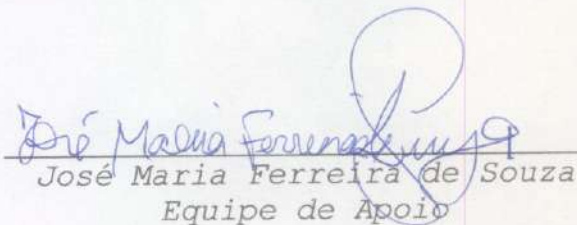 José Maria Ferreira de Souza
José Maria Ferreira de Souza
Equipe de Apoio